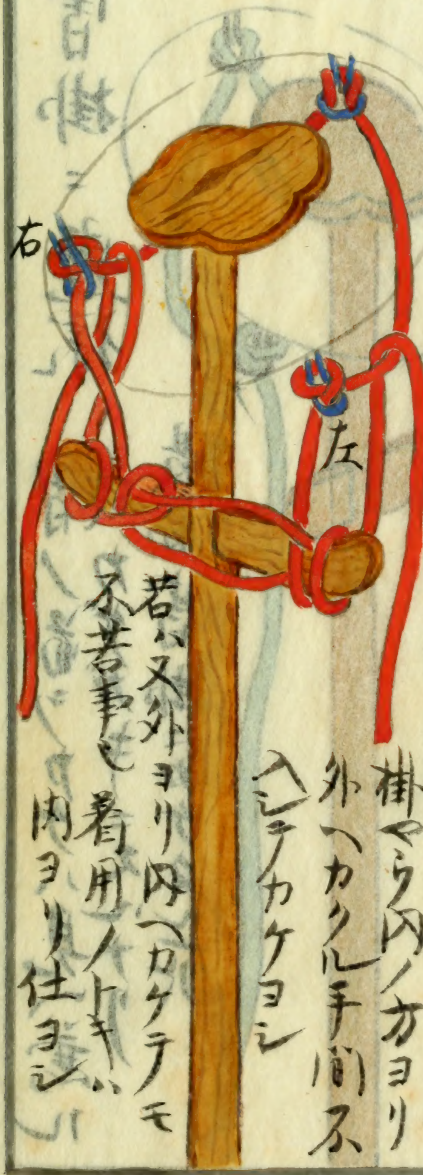 右
左
掛やう内ノ方ヨリ
外ヘカクル手間不
入シテカケヨシ
若ハ又外ヨリ内ヘカケテモ
不苦事也 着用ノトキハ
内ヨリ仕ヨシ